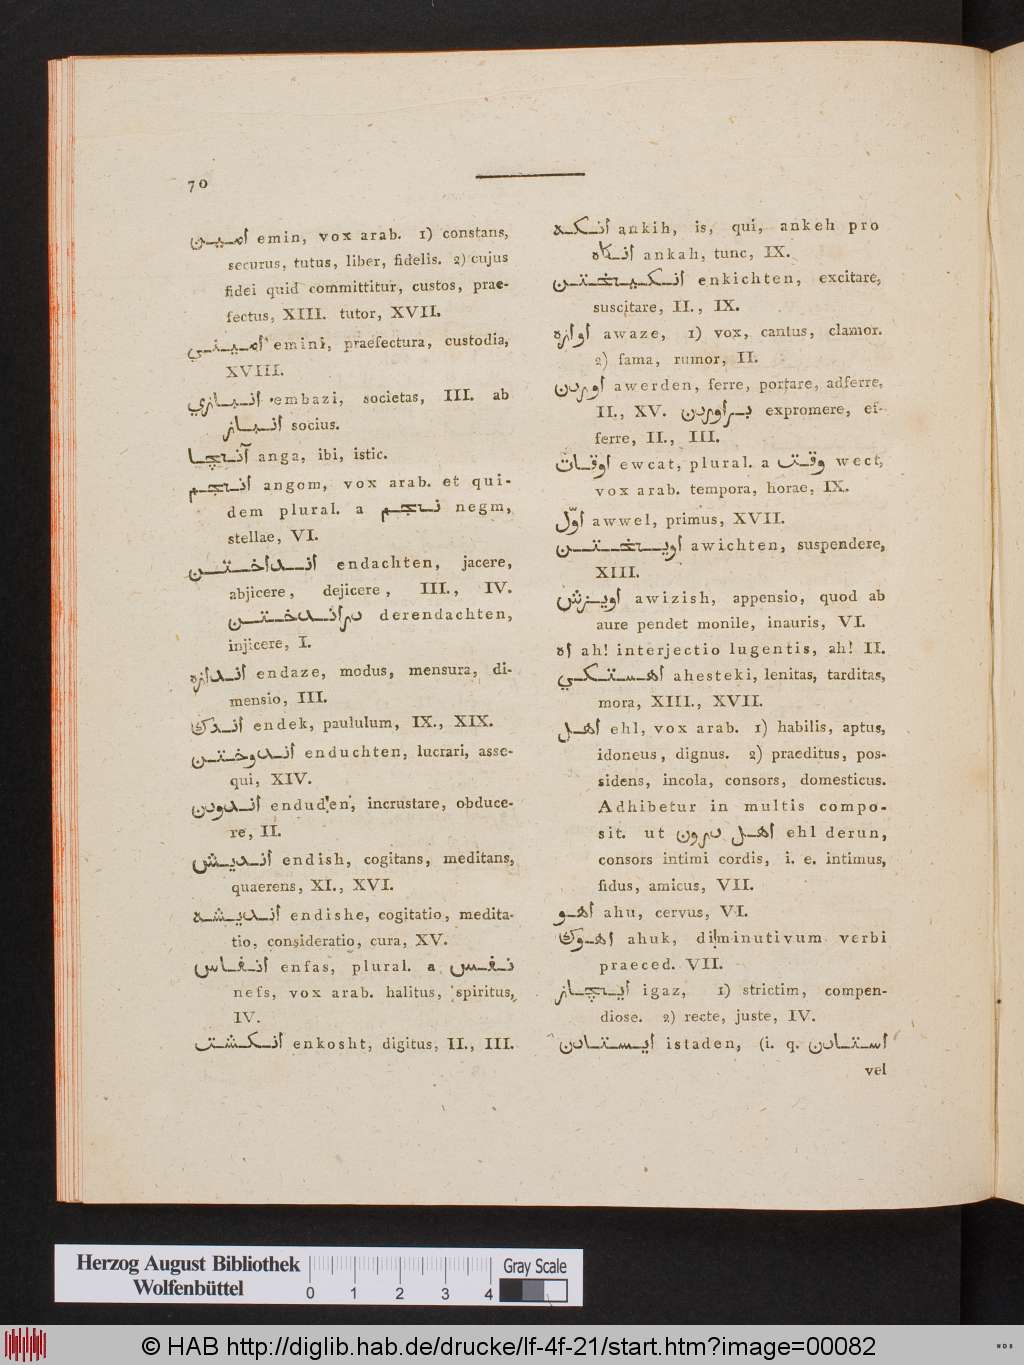 70
أمـيـن emin, vox arab. 1) constans,
securus, tutus, liber, fidelis. 2) cujus
fidei quid committitur, custos, prae-
fectus, XIII. tutor, XVII.
أمـيـنـي emini, praefectura, custodia,
XVIII.
أنـبـازي embazi, societas, III. ab
أنـبـاز socius.
آنـجـا anga, ibi, istic.
أنـجـم angom, vox arab. et qui-
dem plural. a نـجـم negm,
stellae, VI.
أنـداخـتـن endachten, jacere,
abjicere, dejicere, III., IV.
درأنـدخـتـن derendachten,
injicere, I.
أنـدازه endaze, modus, mensura, di-
mensio, III.
أنـدك endek, paululum, IX., XIX.
أنـدوخـتـن enduchten, lucrari, asse-
qui, XIV.
أنـدودن enduden, incrustare, obduce-
re, II.
أنـديـش endish, cogitans, meditans,
quaerens, XI., XVI.
أنـديـشـه endishe, cogitatio, medita-
tio, consideratio, cura, XV.
أنـفـاس enfas, plural. a نـفـس
nefs, vox arab. halitus, spiritus,
IV.
أنـكـشـت enkosht, digitus, II., III.
أنـكـه ankih, is, qui, ankeh pro
أنـكاه ankah, tunc, IX.
أنـكـيـخـتـن enkichten, excitare,
suscitare, II., IX.
اوازه awaze, 1) vox, cantus, clamor.
2) fama, rumor, II.
أوردن awerden, ferre, portare, adferre,
II., XV. بـراوردن expromere, ef-
ferre, II., III.
أوقـات ewcat, plural. a وقـت wect,
vox arab. tempora, horae, IX.
أوّل awwel, primus, XVII.
أويـخـتـن awichten, suspendere,
XIII.
أويـزش awizish, appensio, quod ab
aure pendet monile, inauris, VI.
اه ah! interjectio lugentis, ah! II.
أهـسـتـكـي ahesteki, lenitas, tarditas,
mora, XIII., XVII.
أهـل ehl, vox arab. 1) habilis, aptus,
idoneus, dignus. 2) praeditus, pos-
sidens, incola, consors, domesticus.
Adhibetur in multis compo-
sit. ut أهـل درون ehl derun,
consors intimi cordis, i. e. intimus,
fidus, amicus, VII.
أهـو ahu, cervus, VI.
أهـوك ahuk, diminutivum verbi
praeced. VII.
أيـجـاز igaz, 1) strictim, compen-
diose. 2) recte, juste, IV.
أيـسـتـادن istaden, (i. q. أسـتـادن
vel
Herzog August Bibliothek
Wolfenbüttel
0 1 2 3 4
Gray Scale
© HAB http://diglib.hab.de/drucke/lf-4f-21/start.htm?image=00082